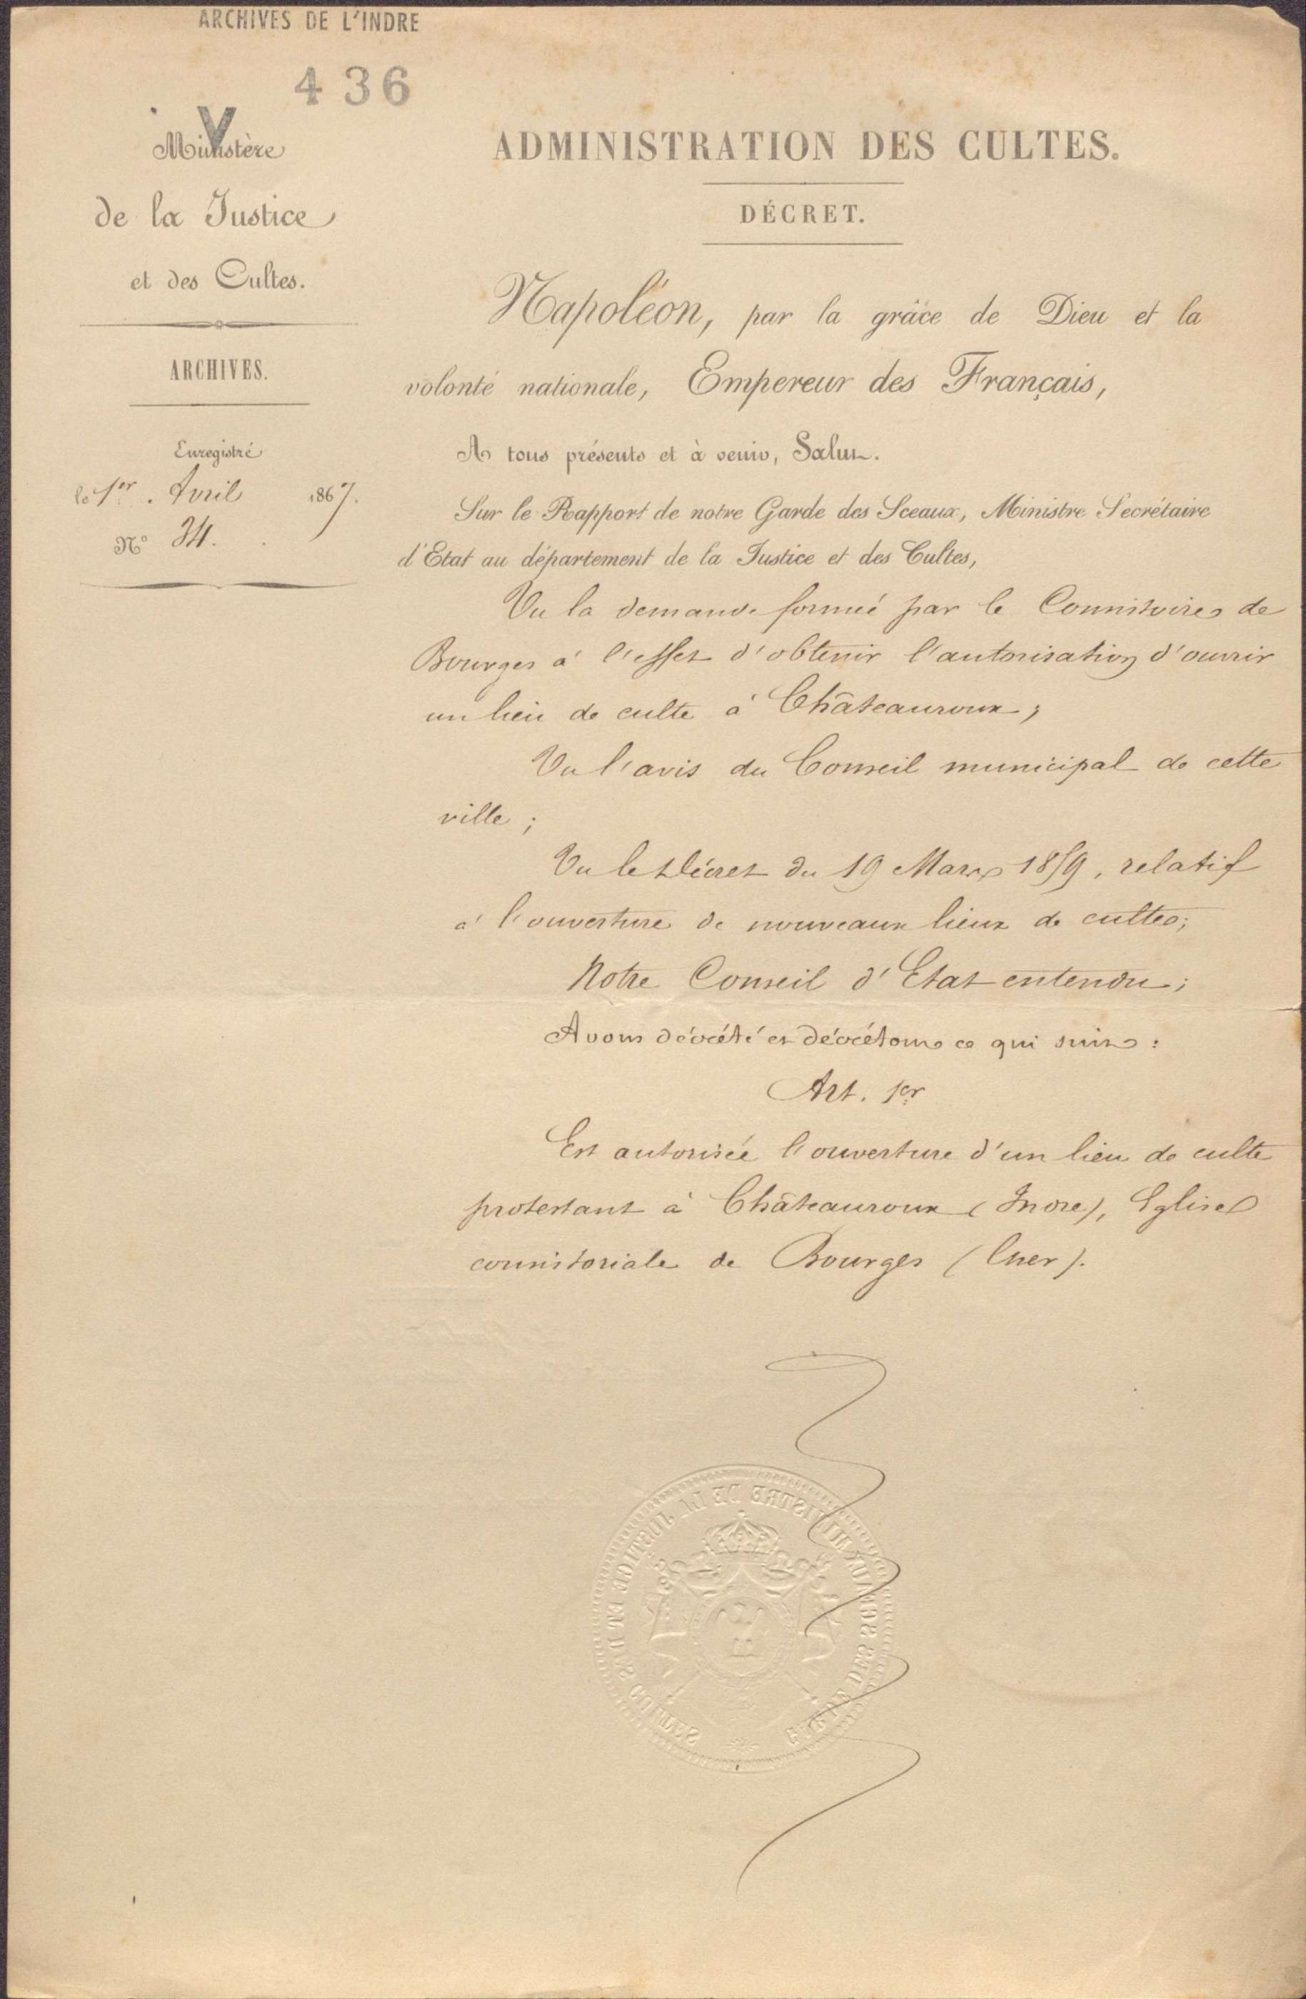 ARCHIVES DE L'INDRE
436
V
Ministère
de la Justice
et des Cultes.
ARCHIVES.
Enregistré
le 1er. Avril 1867.
N° 34.
ADMINISTRATION DES CULTES.
DÉCRET.
Napoléon, par la grâce de Dieu et la
volonté nationale, Empereur des Français,
A tous présents et à venir, Salut.
Sur le Rapport de notre Garde des Sceaux, Ministre Secrétaire
d'Etat au département de la Justice et des Cultes,
Vu la demande formée par le Consistoire de
Bourges à l'effet d'obtenir l'autorisation d'ouvrir
un lieu de culte à Châteauroux;
Vu l'avis du Conseil municipal de cette
ville;
Vu le Décret du 19 Mars 1859, relatif
à l'ouverture de nouveaux lieux de cultes;
Notre Conseil d'Etat entendu;
Avons décrété et décrétons ce qui suit:
Art. 1er
Est autorisée l'ouverture d'un lieu de culte
protestant à Châteauroux (Indre), Eglise
consistoriale de Bourges (Cher).
MINISTRE DE LA JUSTICE ET DES CULTES
DES SCEAUX